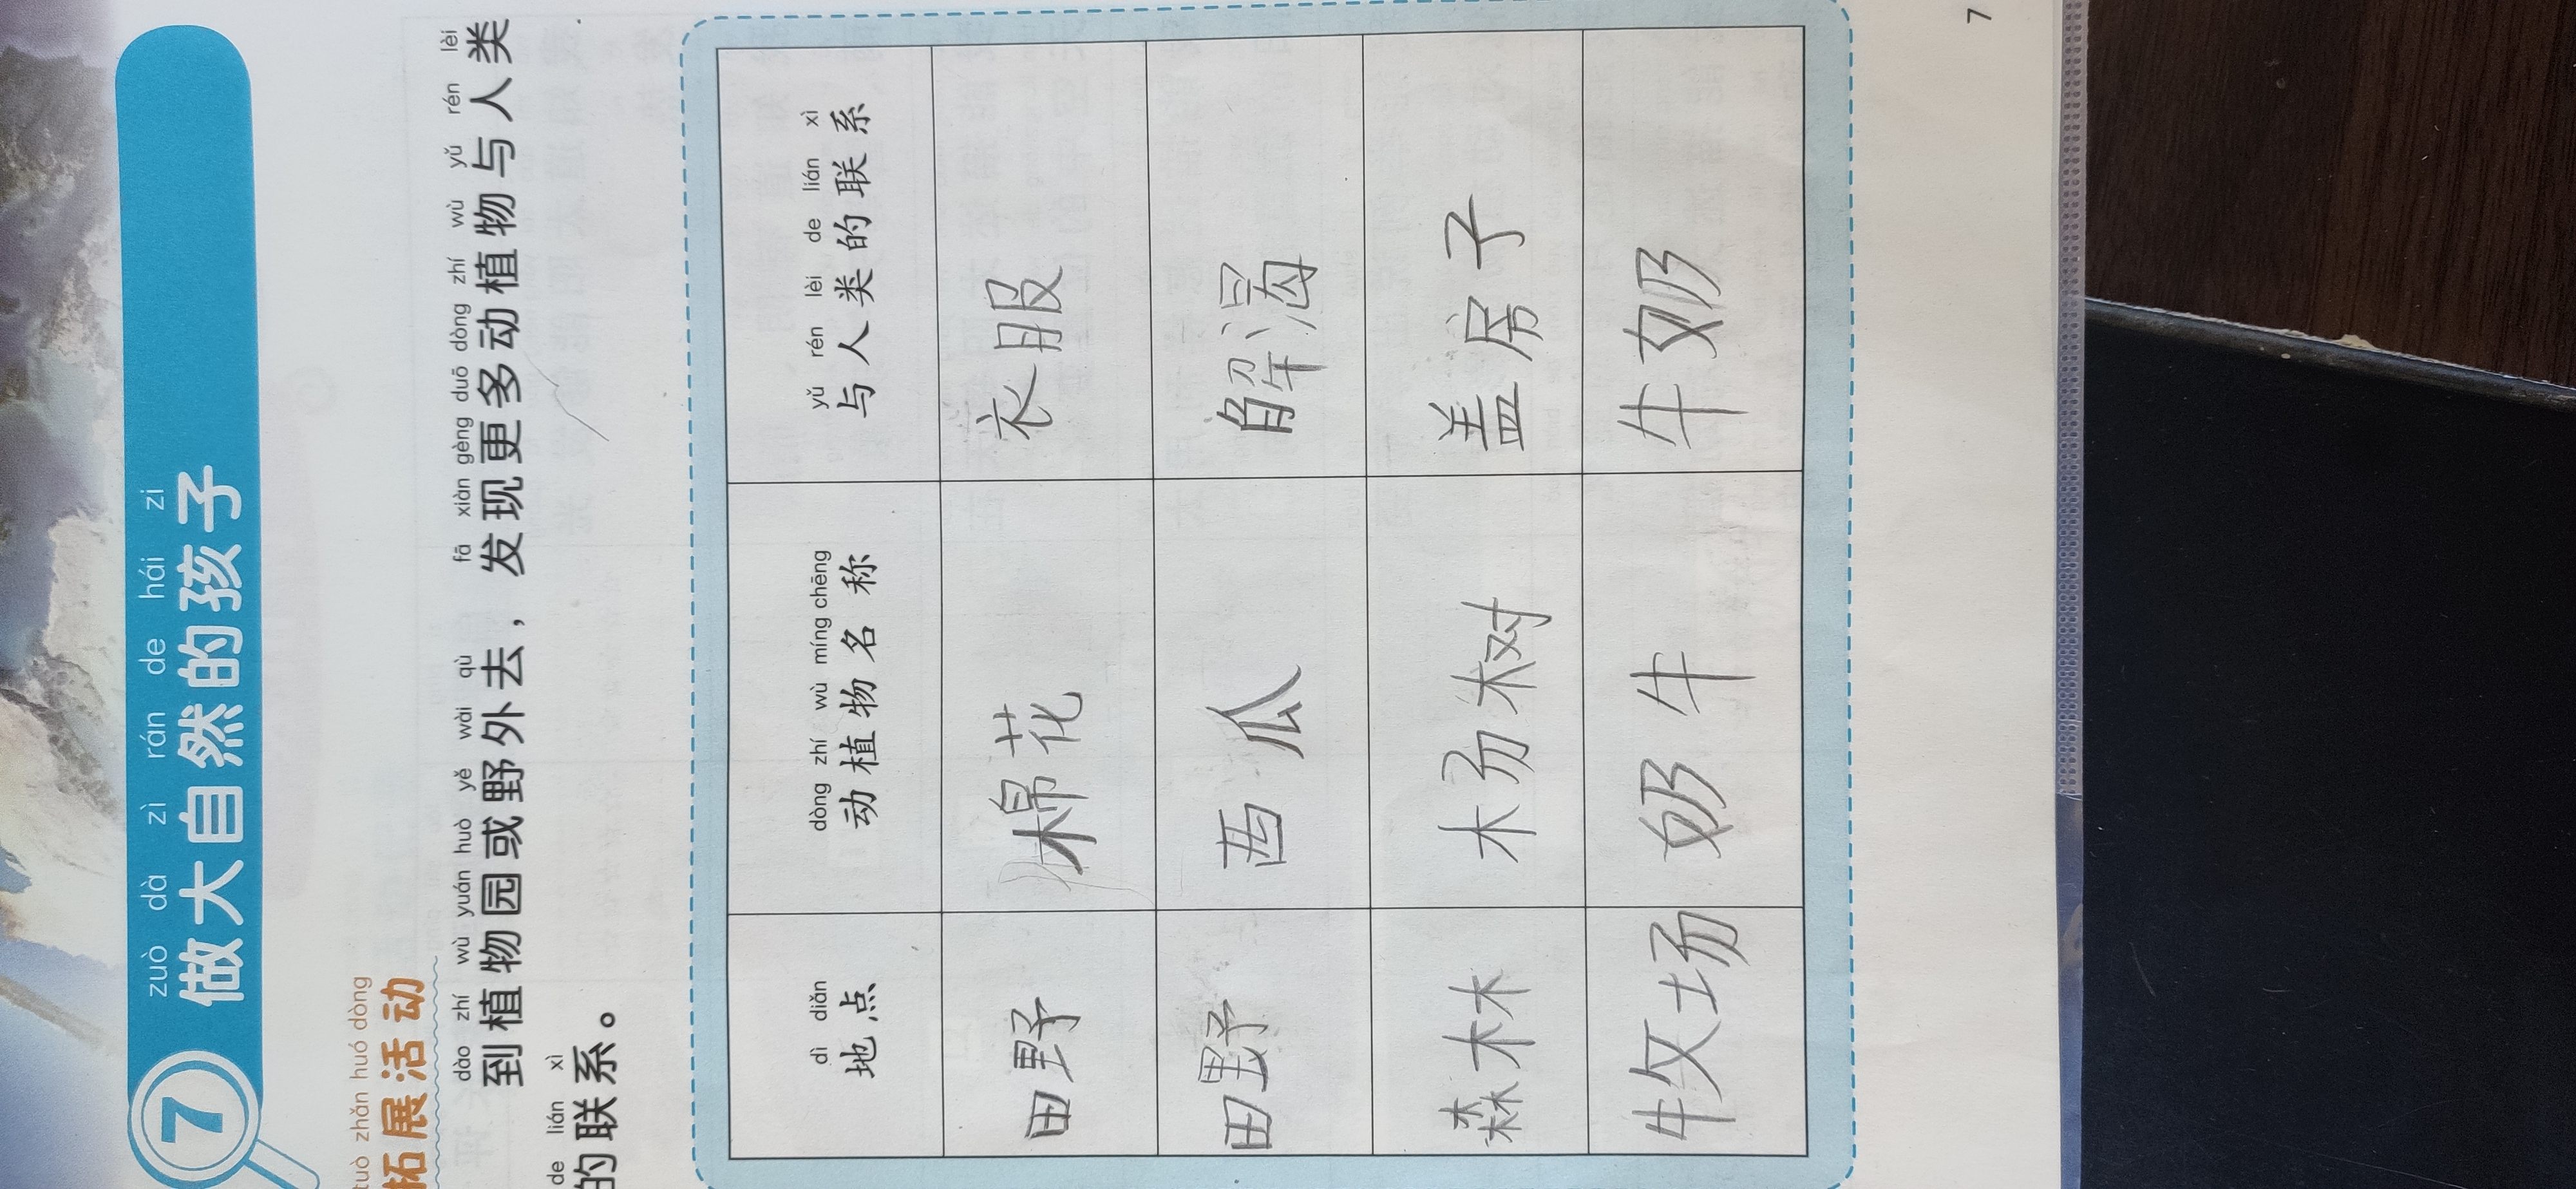 7
zuò dà zì rán de hái zi
做大自然的孩子
tuò zhǎn huó dòng
拓展活动
dào zhí wù yuán huò yě wài qù fā xiàn gèng duō dòng zhí wù yǔ rén lèi
到植物园或野外去，发现更多动植物与人类
de lián xì
的联系。
dì diǎn dòng zhí wù míng chēng yǔ rén lèi de lián xì
地点 动植物名称 与人类的联系
田野 棉花 衣服
田野 西瓜 解渴
森林 杨树 盖房子
牧场 奶牛 牛奶
7